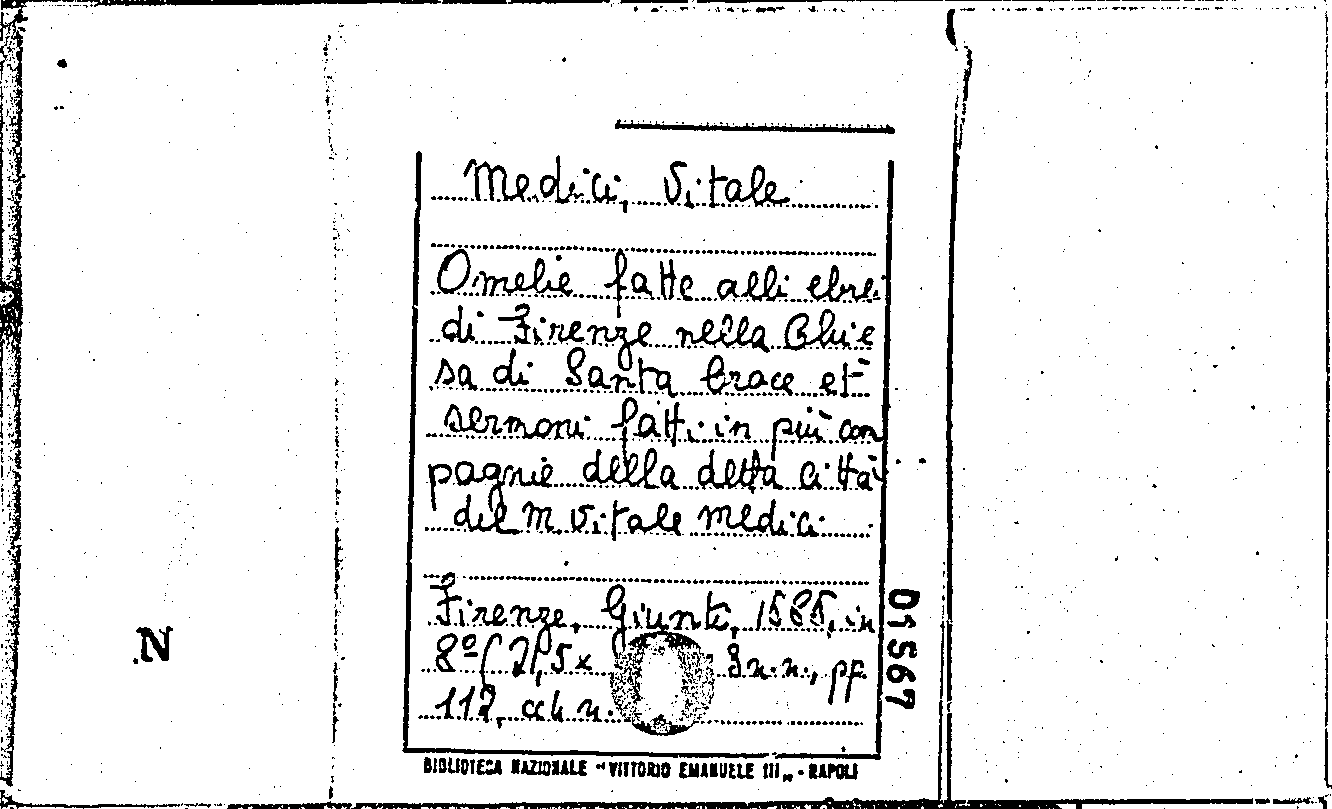 Medici, Vitale
Omelie fatte alli ebrei
di Firenze nella Chie
sa di Santa Croce et
sermoni fatti in più com
pagnie della detta città
del M Vitale Medici
Firenze, Giunti, 1585, in
8º (21,5x 3 n.n., pp.
112, n.
D1567
N
BIBLIOTECA NAZIONALE "VITTORIO EMANUELE III„ - NAPOLI